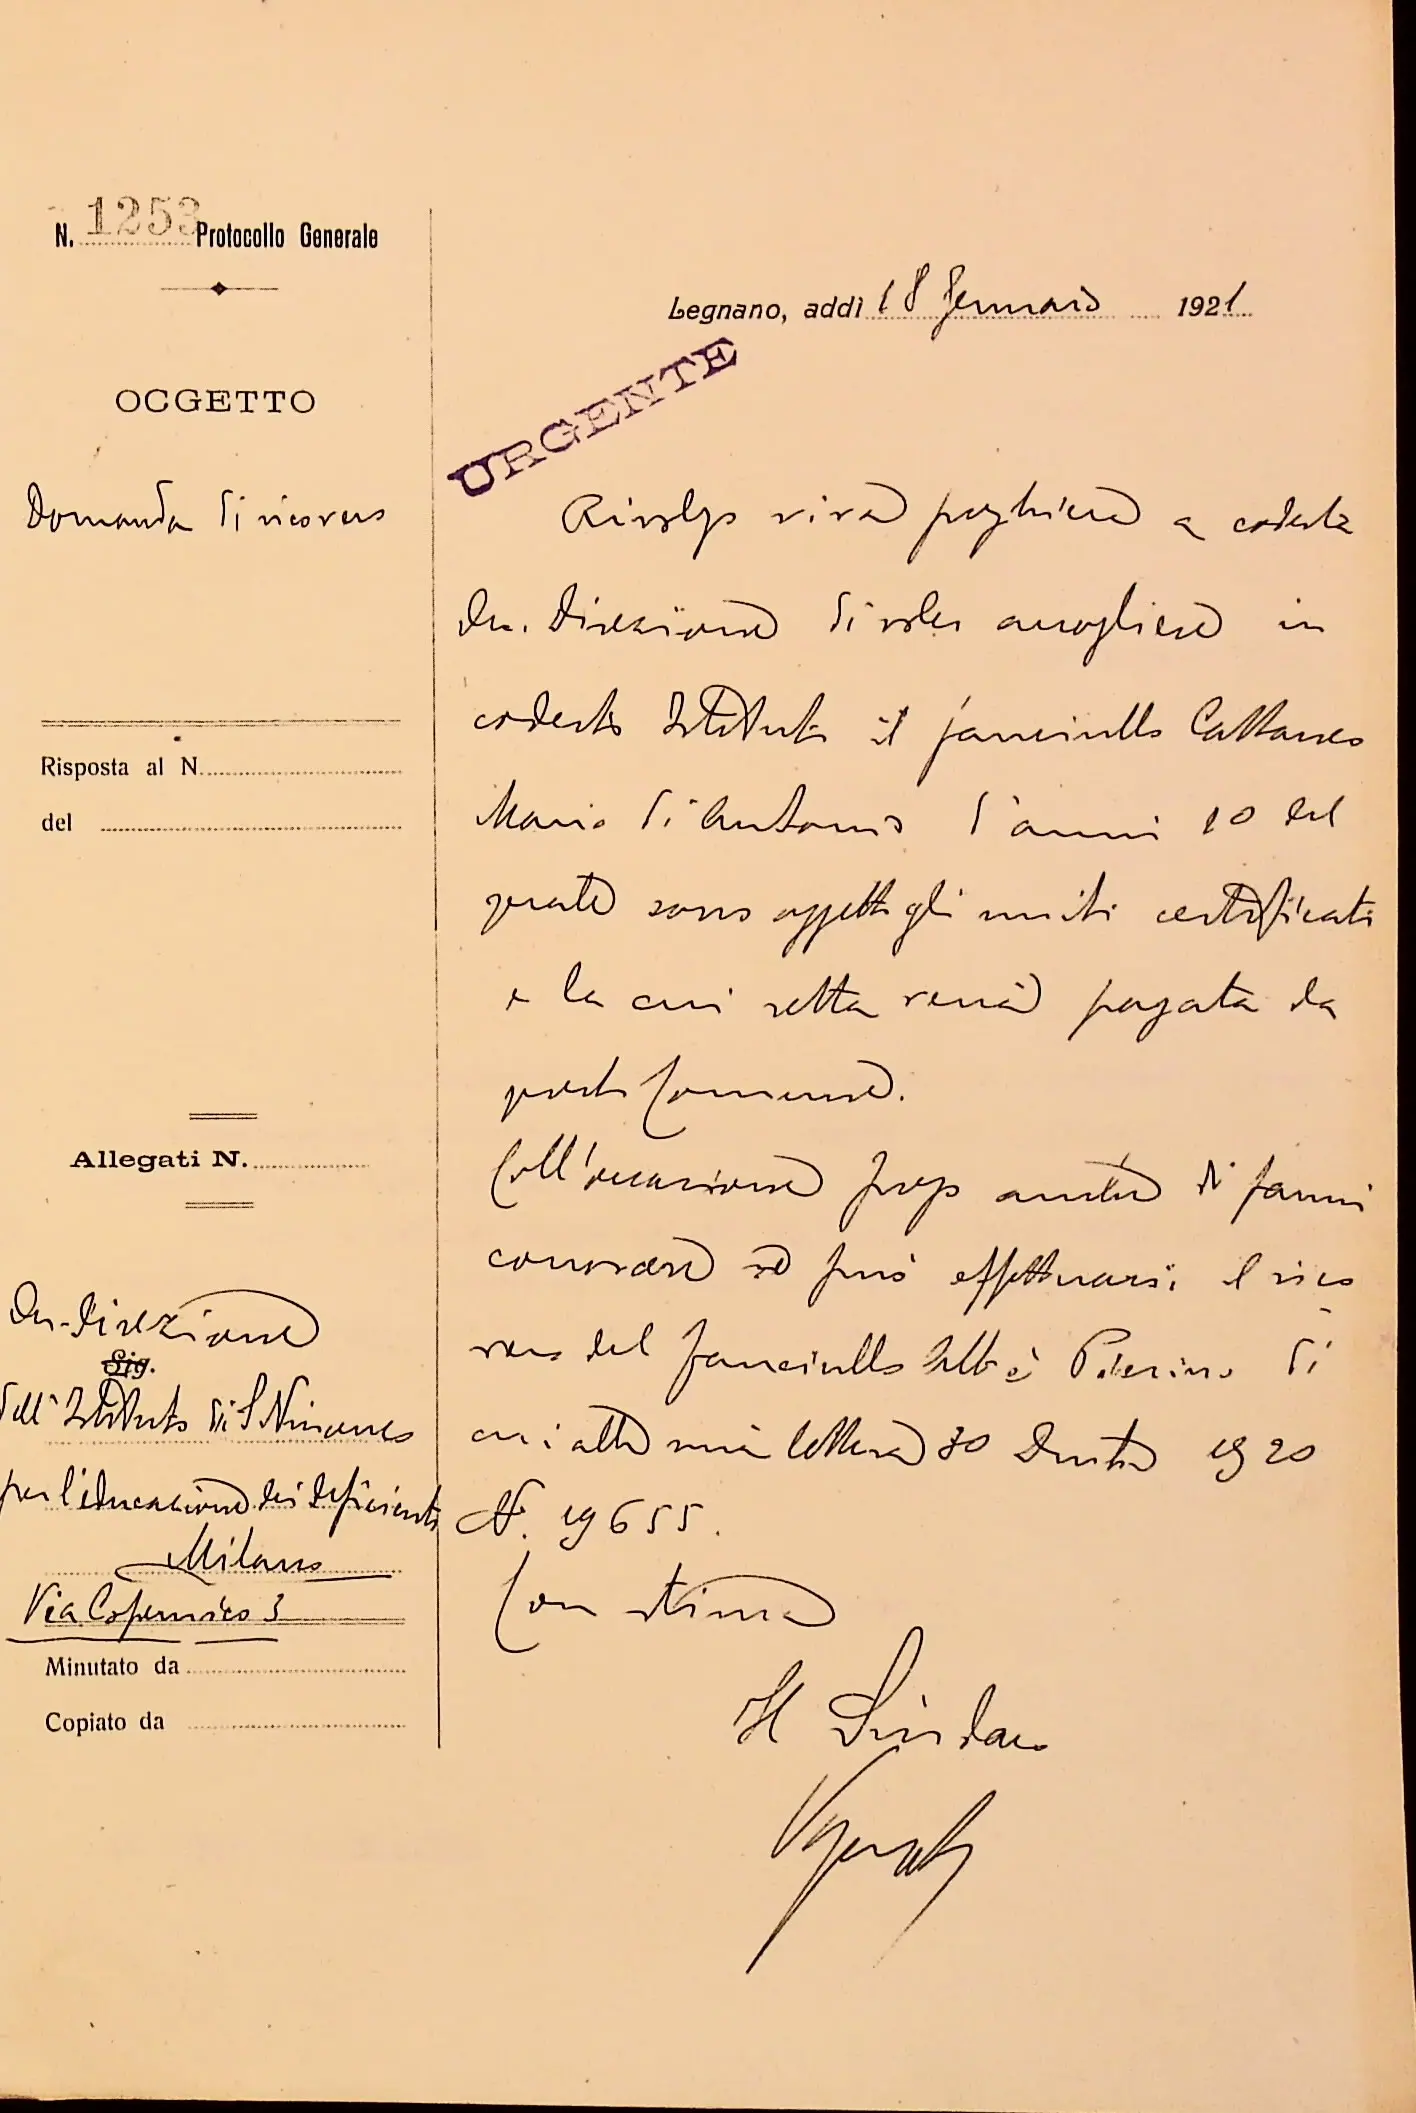 N. 1253 Protocollo Generale
Legnano, addì 18 Gennaio 1921
OGGETTO
URGENTE
Domanda di ricovero
Rivolgo viva preghiera a codesta
On. Direzione di voler accogliere in
codesto Istituto il fanciullo Cattaneo
Mario di Antonio d'anni 10 del
quale sono oggetto gli uniti certificati
e la cui retta verrà pagata da
questo Comune.
Coll'occasione prego anche di farmi
conoscere se può effettuarsi il rico
vero del fanciullo Pierino di
cui alla mia lettera 30 1920
N. 19655.
Con stima
Il Sindaco
Risposta al N.
del
Allegati N.
On. Direzione
Sig.
dell'Istituto di S. Vincenzo
per l'educazione dei deficienti
Milano
Via Copernico 3
Minutato da
Copiato da